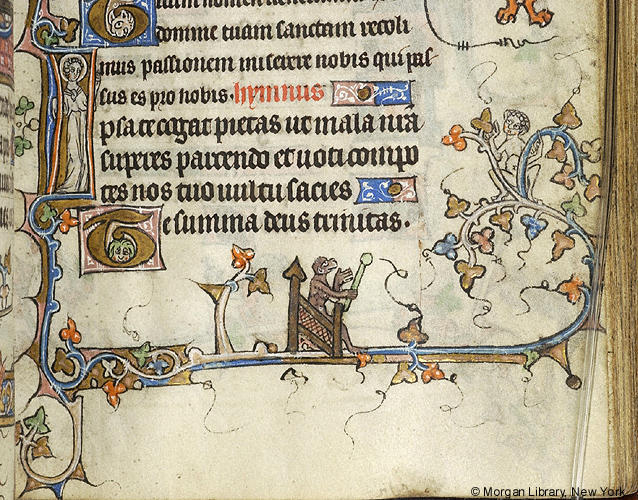 domine tuam sanctam recoli
mus passionem miserere nobis qui pas
sus es pro nobis. hymnus
psa te cogat pietas ut mala nr̄a
superes parcendo et uoti compo
tes nos tuo uultu sacies
Te summa deus trinitas.
© Morgan Library, New York